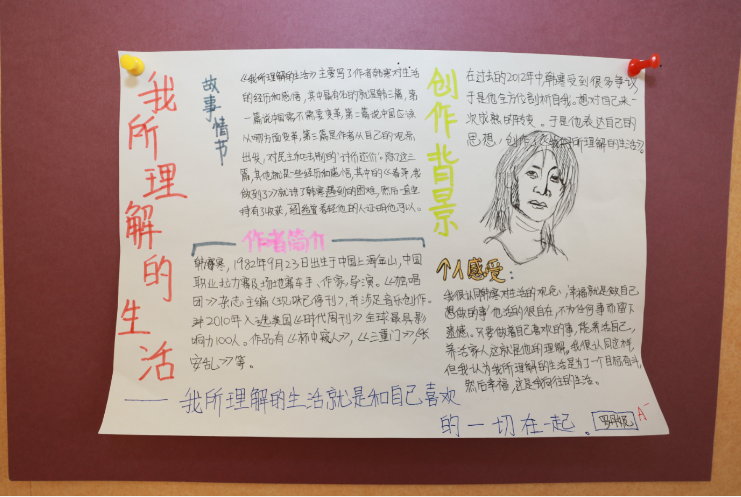 我所理解的生活
故事情节
《我所理解的生活》主要写了作者韩寒对生活
的经历和感悟，其中最有名的就是韩三篇，第
一篇说中国需不需要变革，第二篇说中国应该
从哪方面变革，第三篇是作者从自己的观点
出发，对民主和法制的“讨价还价”。除了这三
篇，其他就是一些经历和感悟，其中的《春萍，我
做到了》就讲了韩寒遇到的困难，然后一直坚
持有了收获，
作者简介
韩寒，1982年9月23日出生于中国上海金山，中国
职业拉力赛及场地赛车手、作家、导演。《独唱
团》杂志主编《现已停刊》，并涉足音乐创作。
2010年入选美国《时代周刊》全球最具影
响力100人。作品有《杯中窥人》，《三重门》，《长
安乱》等。
创作背景
在过去的2012年中韩寒受到很多争议
于是他全方位剖析自我。想对自己来一
次成熟的转变。于是他表达自己的
思想，创作了《我所理解的生活》。
个人感受：
我很认同韩寒对生活的观念，幸福就是做自己
想做的事他活的很自在，不为任何事而留下
遗憾。只要做着自己喜欢的事，能养活自己，
养活家人这就是他的理解。我很认同这样，
但我认为我所理解的生活是为了一个目标奋斗，
然后幸福，这是我向往的生活。
——我所理解的生活就是和自己喜欢
的一切在一起。
A-